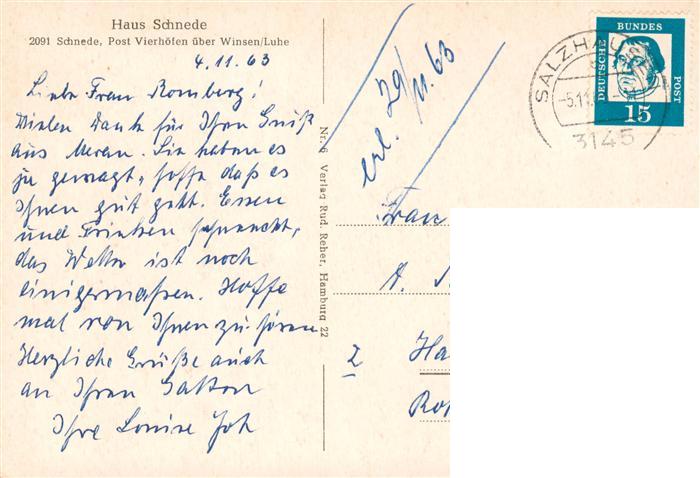 Haus Schnede
2091 Schnede, Post Vierhöfen über Winsen/Luhe
4.11.63
Liebe Frau Romberg!
Vielen Dank für Ihren Gruß
aus Meran. Sie haben es
ja gewagt, hoffe daß es
Ihnen gut geht. Essen
und Trinken schmeckt,
das Wetter ist noch
einigermaßen. Hoffe
mal von Ihnen zu hören
Herzliche Grüße auch
an Ihren Gatten
Ihre Louise Joh
Nr. 6 Verlag Rud. Reher, Hamburg 22
erl. 29/11.63
DEUTSCHE BUNDES POST
15
SALZHAU
-5.11.
3145
Frau
A.
2 Ha
Ro